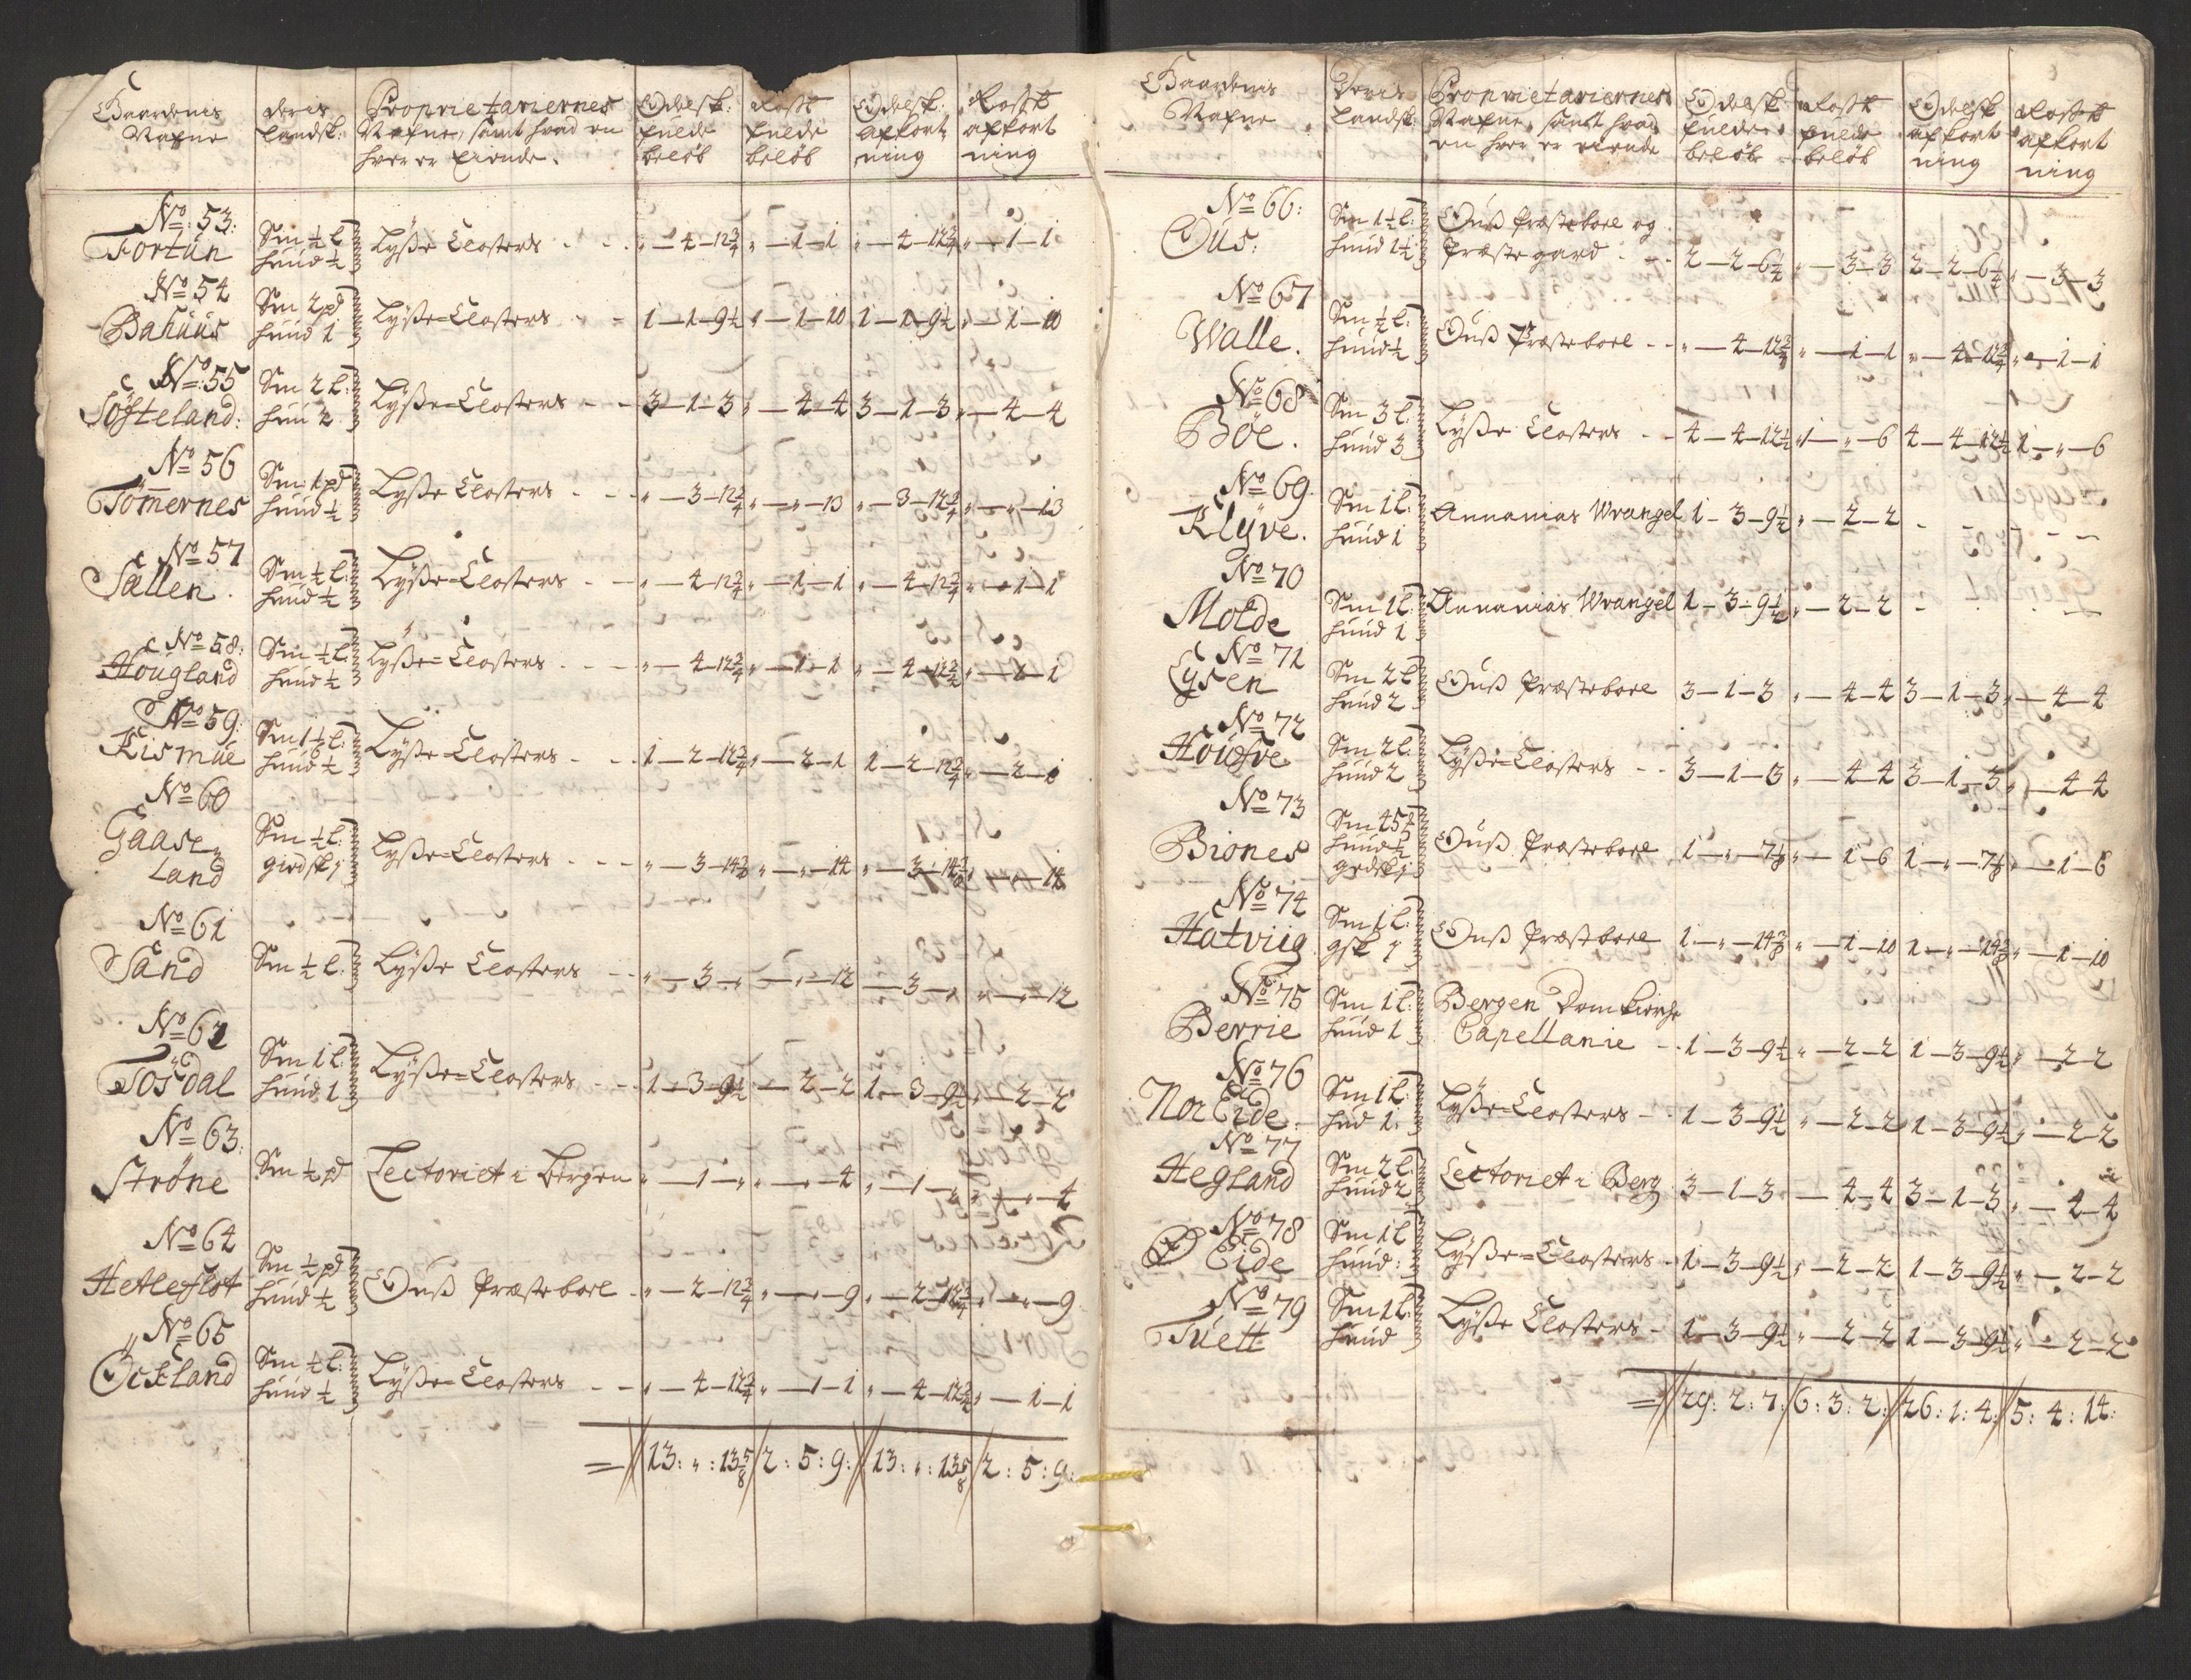 Gaardenis Nafne | deris Landsk: | Proprietariernes Nafne, samt hvad en hver er Eiende. | Odelsk: fulde beløb | Rostt fulde beløb | Odelsk: afkortning | Rostt afkortning
No 53: Fortun | Sm ½ l: huud ½ | Lysse Closters | " — 4 — 12¾ | " — 1 — 1 | " — 4 — 12¾ | " — 1 — 1
No 54 Bahuus | Sm 2 pd huud 1 | Lysse=Closters | 1 — 1 — 9½ | " — 1 — 10 | 1 — 1 — 9½ | " — 1 — 10
No 55 Søfteland: | Sm 2 l: huu 2 | Lysse=Closters | 3 — 1 — 3 | " — 4 — 4 | 3 — 1 — 3 | " — 4 — 4
No 56 Tømernes | Sm 1 pd huud ½ | Lysse Closters | " — 3 — 12¾ | " — " — 13 | " — 3 — 12¾ | " — " — 13
No 57 Sællen. | Sm ½ l: huud ½ | Lysse=Closters | " — 4 — 12¾ | " — 1 — 1 | " — 4 — 12¾ | " — 1 — 1
No 58: Hougland | Sm ½ l: huud ½ | Lysse=Closters | " — 4 — 12¾ | " — 1 — 1 | " — 4 — 12¾ | " — 1 — 1
No 59: Kismue | Sm 1½ l: huud ½ | Lysse=Closters | 1 — 2 — 12¾ | " — 2 — 1 | 1 — 2 — 12¾ | " — 2 — 1
No 60 Gaase Land | Sm ½ l: giedsk j | Lysse=Closters | " — 3 — 14⅜ | " — " — 14 | " — 3 — 14⅜ | " — " — 14
No 61 Sand | Sm ½ l: | Lysse Closters | " — 3 — " | " — " — 12 | " — 3 — " | " — " — 12
No 62 Tøsdal | Sm 1 l: huud 1 | Lysse=Closters | 1 — 3 — 9½ | " — 2 — 2 | 1 — 3 — 9½ | " — 2 — 2
No 63: Strøne | Sm ½ pd | Lectoriet i Bergen | " — 1 — " | " — " — 4 | " — 1 — " | " — " — 4
No 64 Hetleflot | Sm ½ pd huud ½ | Ouss Præsteboel | " — 2 — 12¾ | " — " — 9 | " — 2 — 12¾ | " — " — 9
No 65 Øckland | Sm ½ l: huud ½ | Lysse=Closters | " — 4 — 12¾ | " — 1 — 1 | " — 4 — 12¾ | " — 1 — 1
= 13: " : 13⅝ | 2 : 5 : 9: | 13: " : 13⅝ | 2 : 5 : 9:
Gaardenis Nafne | Deris Landsk: | Proprietariernes Nafne, samt hvad en hver er eiende | Odelsk: fulde beløb | Rostt fulde beløb | Odelsk afkortning | Rostt afkortning
No 66: Ous: | Sm 1½ l: huud 1½ | Ouss Præsteboel og Præstegard | 2 — 2 — 6½ | " — 3 — 3 | 2 — 2 — 6½ | " — 3 — 3
No 67 Walle. | Sm ½ l: huud ½ | Ouss Præsteboel | " — 4 — 12¾ | " — 1 — 1 | " — 4 — 12¾ | " — 1 — 1
No 68 Bøe. | Sm 3 l: huud 3 | Lysse Closters | 4 — 4 — 12½ | 1 — " — 6 | 4 — 4 — 12½ | 1 — " — 6
No 69 Klyve. | Sm 1 l: huud 1 | Annanias Wrangel | 1 — 3 — 9½ | " — 2 — 2
No 70 Molde | Sm 1 l: huud 1 | Annanias Wrangel | 1 — 3 — 9½ | " — 2 — 2
No 71 Lysen | Sm 2 l huud 2 | Ouss Præsteboel | 3 — 1 — 3 | " — 4 — 4 | 3 — 1 — 3 | " — 4 — 4
No 72 Houfve | Sm 2 l: huud 2 | Lysse=Closters | 3 — 1 — 3 | " — 4 — 4 | 3 — 1 — 3 | " — 4 — 4
No 73 Biones | Sm huud ½ gedsk j | Ouss Præsteboel | 1 — " — 7⅛ | " — 1 — 6 | 1 — " — 7⅛ | " — 1 — 6
No 74 Hatviig | Sm 1 l: gsk j | Ouss Præstboel | 1 — " — 14⅜ | " — 1 — 10 | 1 — " — 14⅜ | " — 1 — 10
No 75 Berrie | Sm 1 l: huud 1 | Bergen Domkirche Capellanie | 1 — 3 — 9½ | " — 2 — 2 | 1 — 3 — 9½ | " — 2 — 2
No 76 Nor Eide. | Sm 1 l: hud 1: | Lysse=Closters | 1 — 3 — 9½ | " — 2 — 2 | 1 — 3 — 9½ | " — 2 — 2
No 77 Hegland | Sm 2 l: huud 2 | Lectoriet i Berg | 3 — 1 — 3 | " — 4 — 4 | 3 — 1 — 3 | " — 4 — 4
No 78 Eide | Sm 1 l huud: | Lysse=Closters | 1 — 3 — 9½ | " — 2 — 2 | 1 — 3 — 9½ | " — 2 — 2
No 79 Tuett | Sm 1 l: huud | Lysse Closters | 1 — 3 — 9½ | " — 2 — 2 | 1 — 3 — 9½ | " — 2 — 2
= 29: 2: 7: | 6: 3: 2: | 26: 1: 4: | 5: 4: 14: